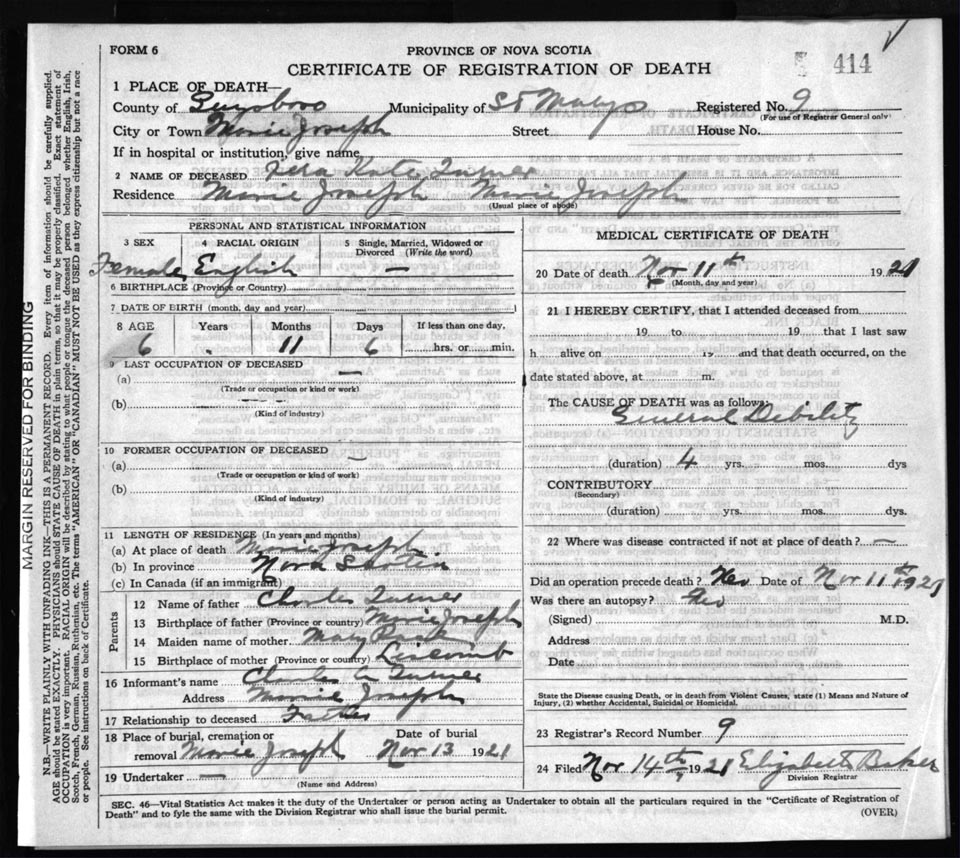 FORM 6
PROVINCE OF NOVA SCOTIA
CERTIFICATE OF REGISTRATION OF DEATH
414
1 PLACE OF DEATH—
County of Guysboro Municipality of St Marys Registered No. 9
(For use of Registrar General only)
City or Town Marie Joseph Street House No.
If in hospital or institution, give name
2 NAME OF DECEASED Kate Turner
Residence Marie Joseph Marie Joseph
(Usual place of abode)
PERSONAL AND STATISTICAL INFORMATION
3 SEX 4 RACIAL ORIGIN 5 Single, Married, Widowed or Divorced (Write the word)
Female English —
6 BIRTHPLACE (Province or Country)
7 DATE OF BIRTH (month, day and year)
8 AGE Years Months Days If less than one day,
6 11 6 hrs. or min.
9 LAST OCCUPATION OF DECEASED —
(a)
(Trade or occupation or kind or work)
(b)
(Kind of industry)
10 FORMER OCCUPATION OF DECEASED
(a)
(Trade or occupation or kind of work)
(b)
(Kind of industry)
11 LENGTH OF RESIDENCE (In years and months)
(a) At place of death Marie Joseph
(b) In province Nova Scotia
(c) In Canada (if an immigrant)
Parents
12 Name of father Charles Turner
13 Birthplace of father (Province or country) Marie Joseph
14 Maiden name of mother Mary
15 Birthplace of mother (Province or country) Liscomb
16 Informant's name Charles A Turner
Address Marie Joseph
17 Relationship to deceased Father
18 Place of burial, cremation or removal Marie Joseph Date of burial Nov 13 1921
19 Undertaker —
(Name and Address)
MEDICAL CERTIFICATE OF DEATH
20 Date of death Nov 11th 1921
(Month, day and year)
21 I HEREBY CERTIFY, that I attended deceased from
19 to 19 that I last saw
h alive on 19 and that death occurred, on the
date stated above, at m.
The CAUSE OF DEATH was as follows:
General Debility
(duration) 4 yrs. mos. dys
CONTRIBUTORY
(Secondary)
(duration) yrs. mos. dys.
22 Where was disease contracted if not at place of death? —
Did an operation precede death? No Date of Nov 11th 1921
Was there an autopsy? No
(Signed) M.D.
Address
Date
State the Disease causing Death, or in death from Violent Causes, state (1) Means and Nature of
Injury, (2) whether Accidental, Suicidal or Homicidal.
23 Registrar's Record Number 9
24 Filed Nov 14th 1921 Elizabeth Baker
Division Registrar
SEC. 46—Vital Statistics Act makes it the duty of the Undertaker or person acting as Undertaker to obtain all the particulars required in the "Certificate of Registration of
Death" and to fyle the same with the Division Registrar who shall issue the burial permit.
(OVER)
MARGIN RESERVED FOR BINDING
N.B.—WRITE PLAINLY WITH UNFADING INK—THIS IS A PERMANENT RECORD. Every item of information should be carefully supplied.
AGE should be stated EXACTLY. PHYSICIANS should STATE CAUSE OF DEATH in plain terms, so that it may be properly classified. Exact statement of
OCCUPATION is very important. RACIAL ORIGIN will be described by stating to what people or tongue the deceased person belonged whether English, Irish,
Scotch, French, German, Russian, Ruthenian, etc. The terms "AMERICAN" OR "CANADIAN" MUST NOT BE USED as they express citizenship but not a race
or people. See instructions on back of Certificate.